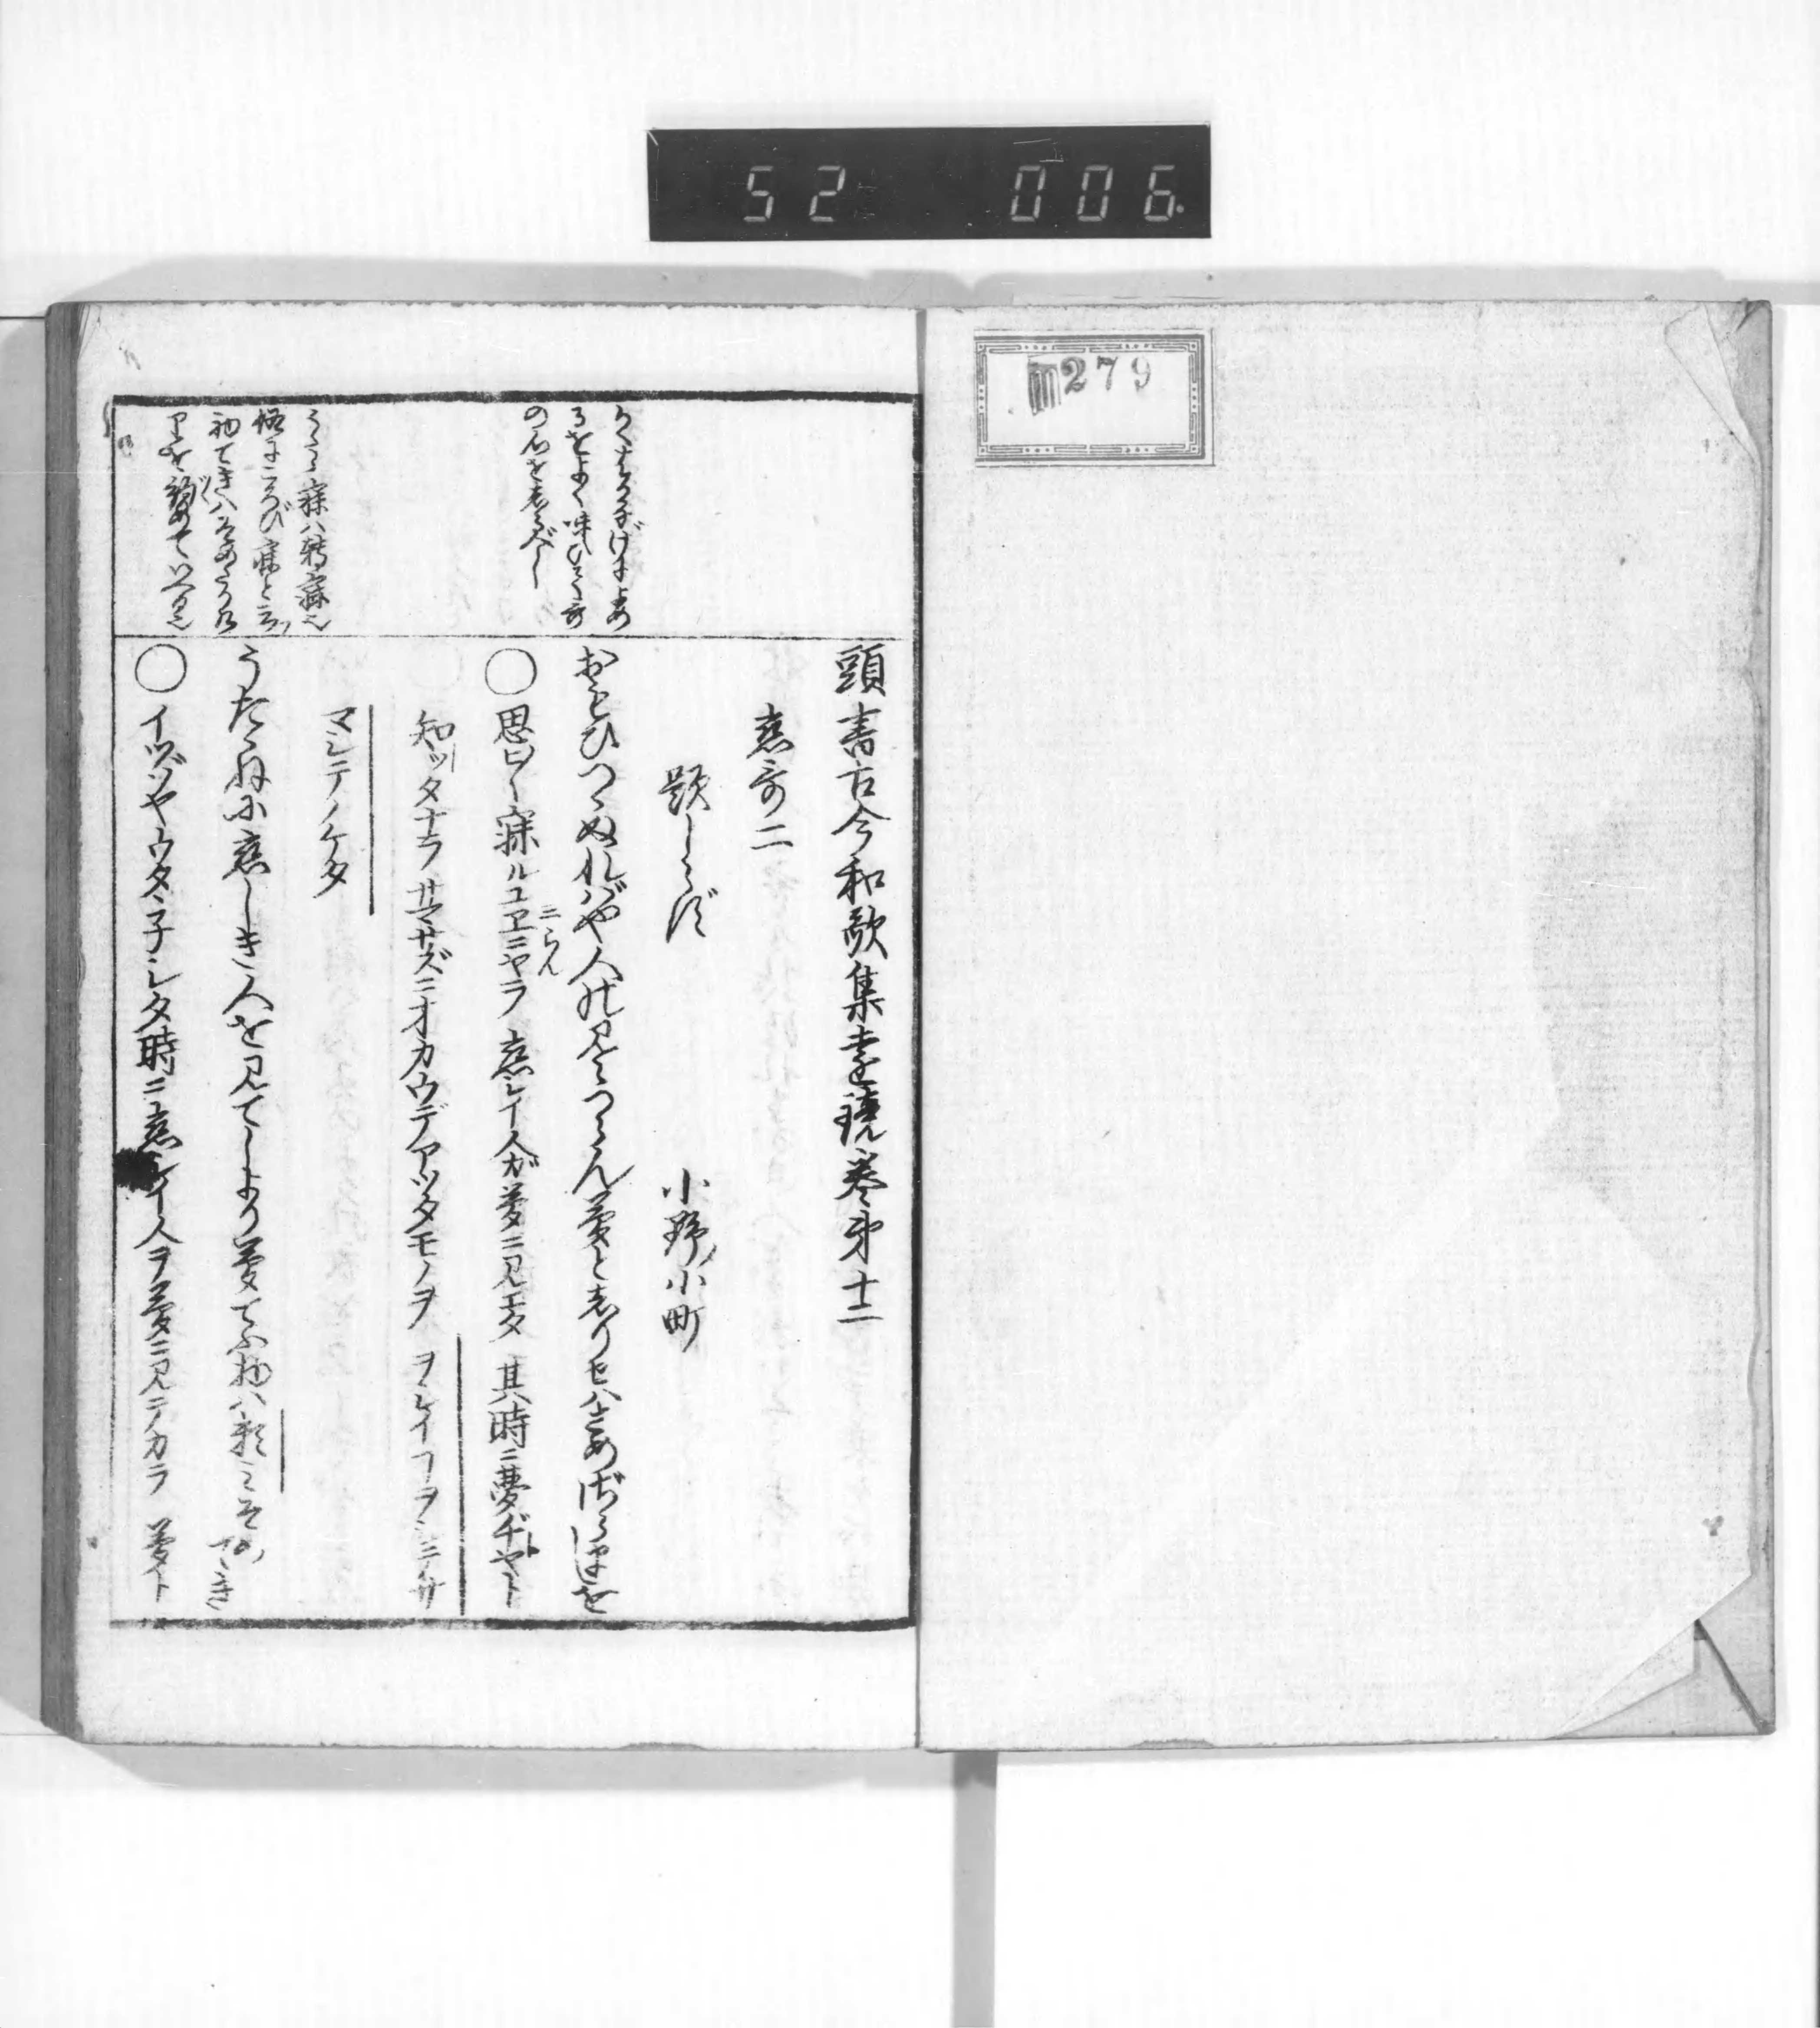 52 006
279
頭書古今和歌集遠鏡巻第十二
恋哥二
題しらず
小野ノ小町
おもひつゝぬればや人の見えつらん夢と志りせバさめざらましを
○思ヒ〳〵寐ルユヱニヤラ 恋シイ人ガ夢ニ見エタ 其時ニ夢ヂヤト
ニらん
知ッタナラ サマサズニオカウデアッタモノヲ ヲシイヿヲシ
マシテノケタ
うたゝねに恋しき人を見てしより夢てふ物ハ頼みそめてき
○イツゾヤウタヽ子シタ時ニ恋シイ人ヲ夢ニ見テカラ 夢ト
るをよく味ひて哥
の心を志るべし
うたゝ寐ハ転寐也
俗にころび寐と云
初てきハそめたる